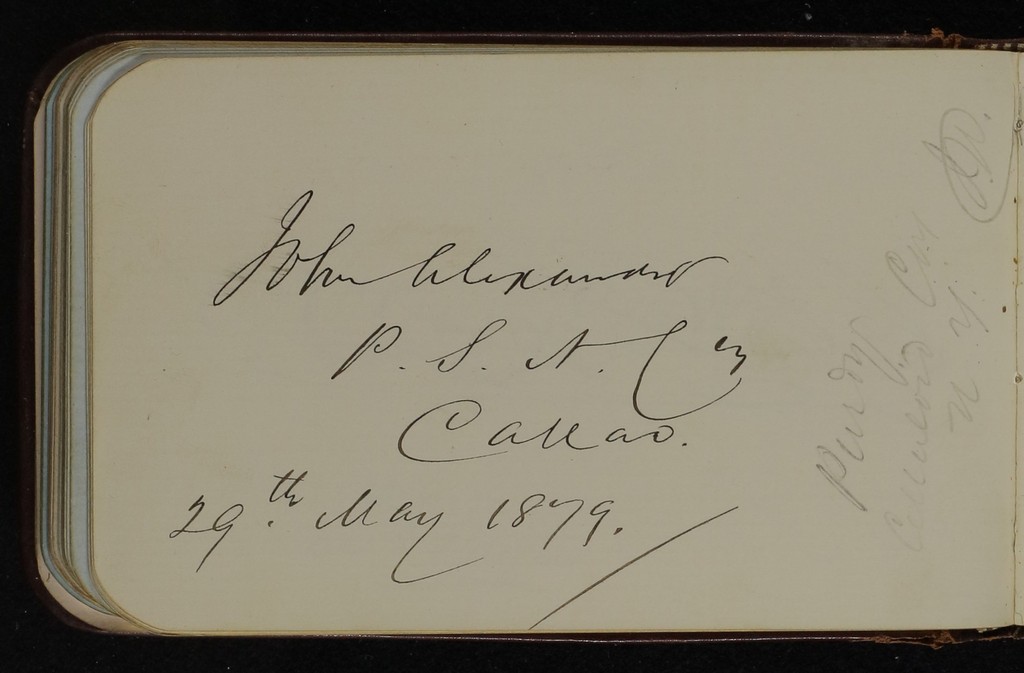 John Alexander
P. S. N. Cy
Callao.
29.th May 1879.
Purdy
N. Y.